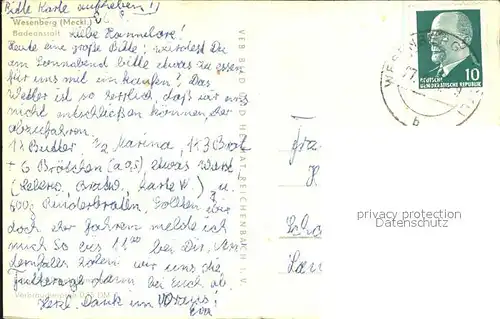 Bitte Karte aufheben!!
Wesenberg (Meckl.)
Badeanstalt
Liebe Hannelore!
Heute eine große Bitte: würdest Du
am Sonnabend bitte etwas zu essen
für uns mit einkaufen? Das
Wetter ist so herrlich, daß wir uns
nicht entschließen können, eher
abzufahren.
1x Butter, 1/2 Marina, 1x3 Brot
+ 6 Brötchen etwas Wurst
(Leberw., Bratw., harte W.) u.
600g Rinderbraten. Sollten wir
doch eher fahren melde ich
mich So bis 11 bei Dir. An-
dernfalls holen wir uns die
dann bei Euch ab.
Herzl. Dank im Voraus!
Eva
VEB BILD UND HEIMAT REICHENBACH I. V.
DEUTSCHE
DEMOKRATISCHE REPUBLIK
10
b
Fra
privacy protection
Datenschutz